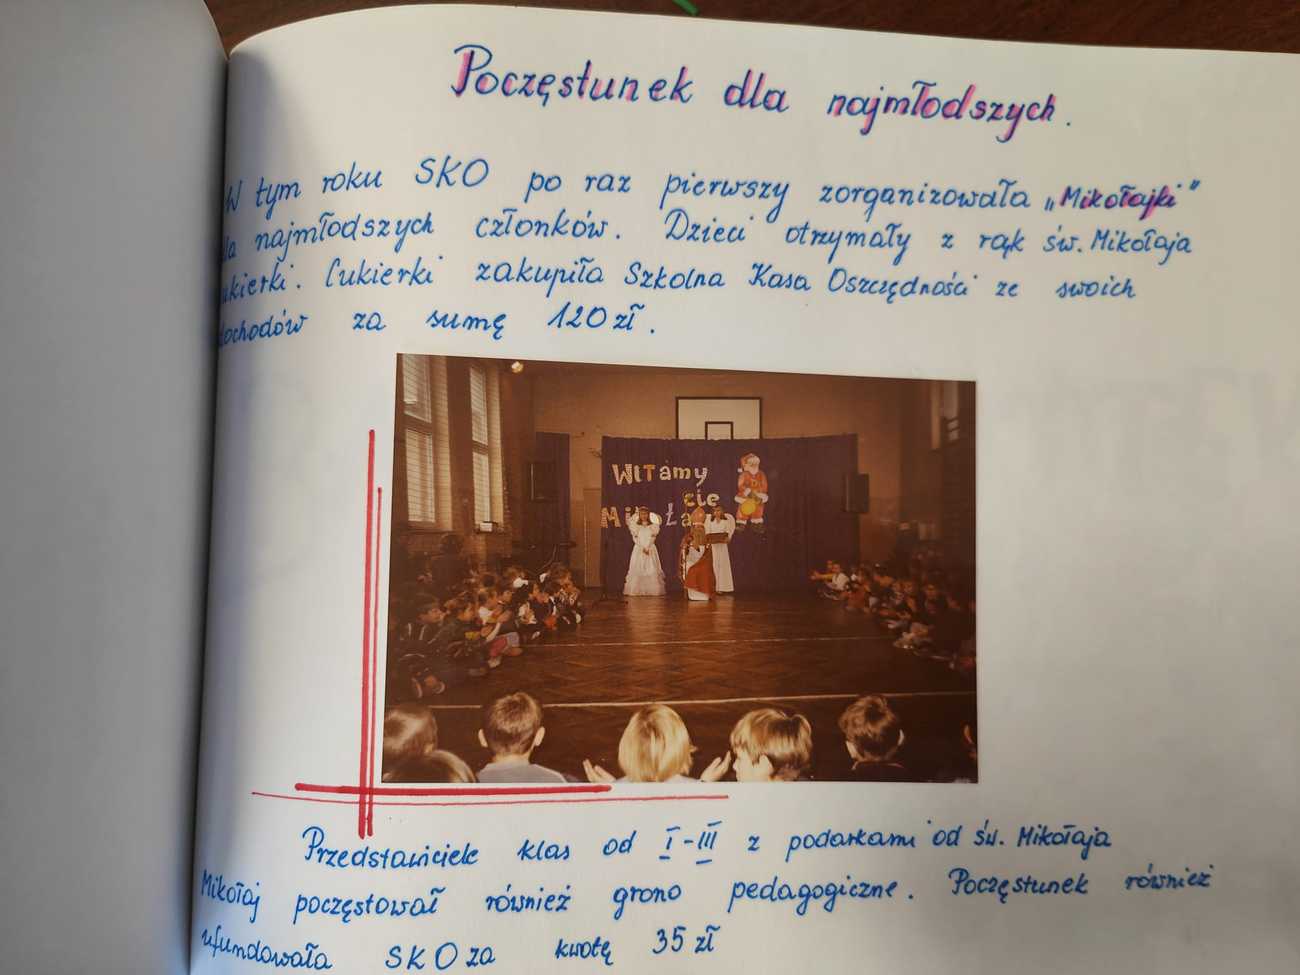 Poczęstunek dla najmłodszych.
W tym roku SKO po raz pierwszy zorganizowała „Mikołajki"
dla najmłodszych członków. Dzieci otrzymały z rąk św. Mikołaja
cukierki. Cukierki zakupiła Szkolna Kasa Oszczędności ze swoich
dochodów za sumę 120 zł.
WITamy
cię
Mikołaju
Przedstawiciele klas od I-III z podarkami od św. Mikołaja
Mikołaj poczęstował również grono pedagogiczne. Poczęstunek również
ufundowała SKO za kwotę 35 zł